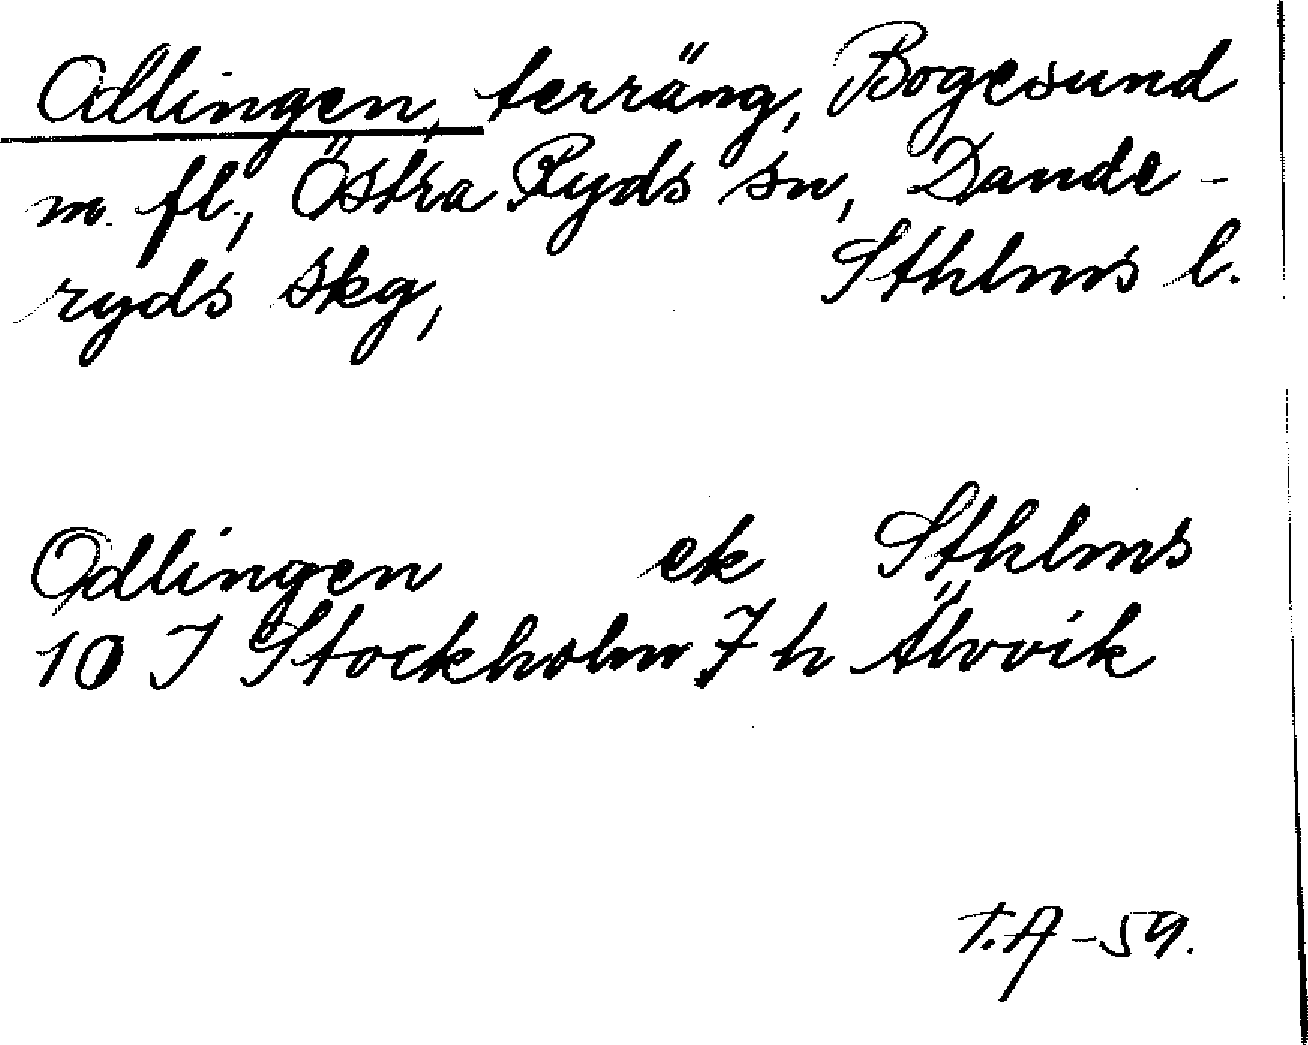 Odlingen, terräng, Bogesund
m. fl., Östra Ryds sn, Dande-
ryds skg, Sthlms l.
Odlingen ek Sthlms
10 I Stockholm 7 h Älvvik
T.A -59.